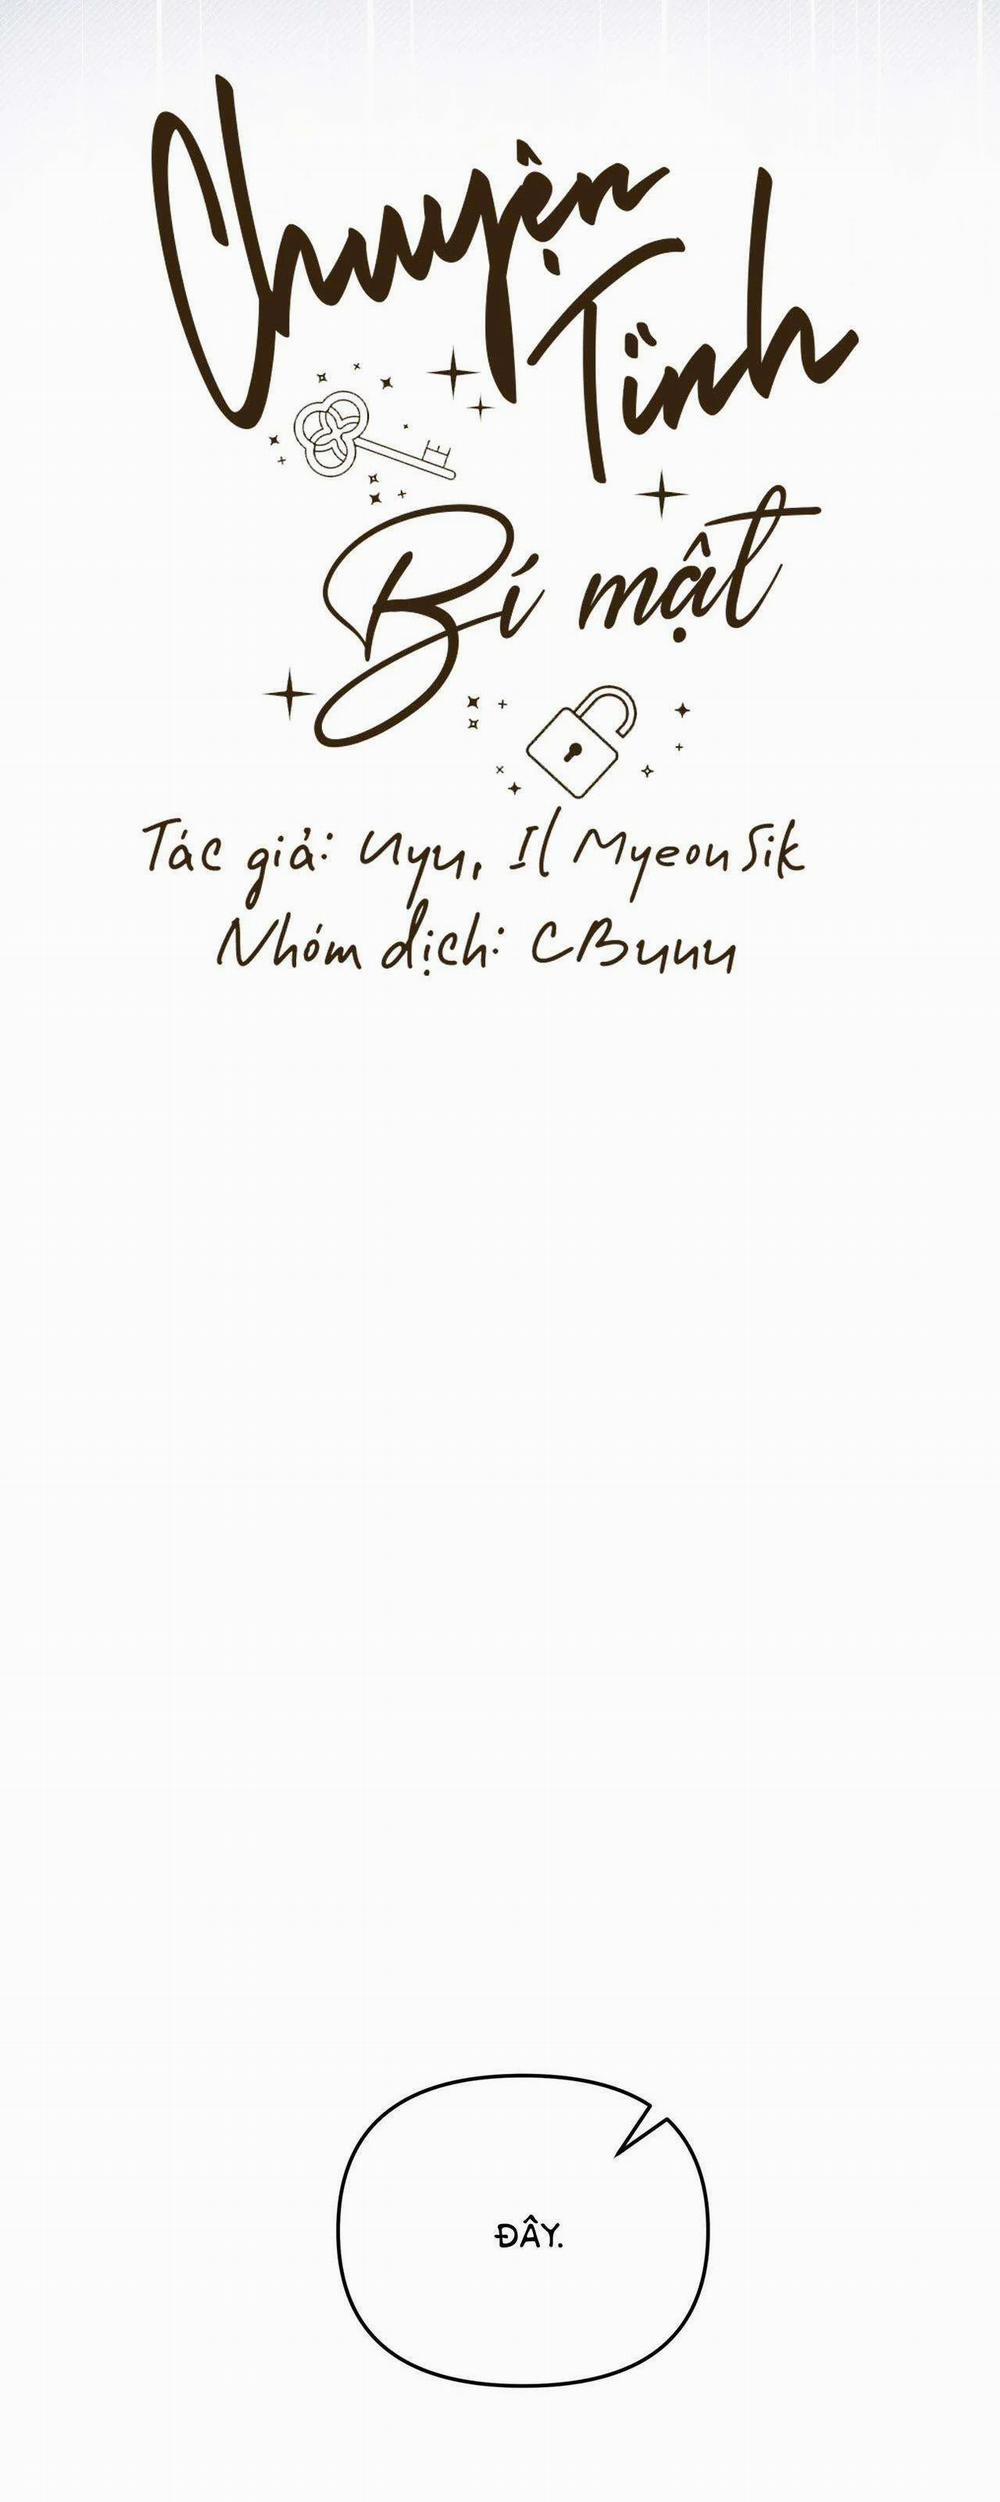 Chuyện
Tình
Bí mật
Tác giả: Uyu, Il Myeon Sik
Nhóm dịch: CBunu
ĐÂY.